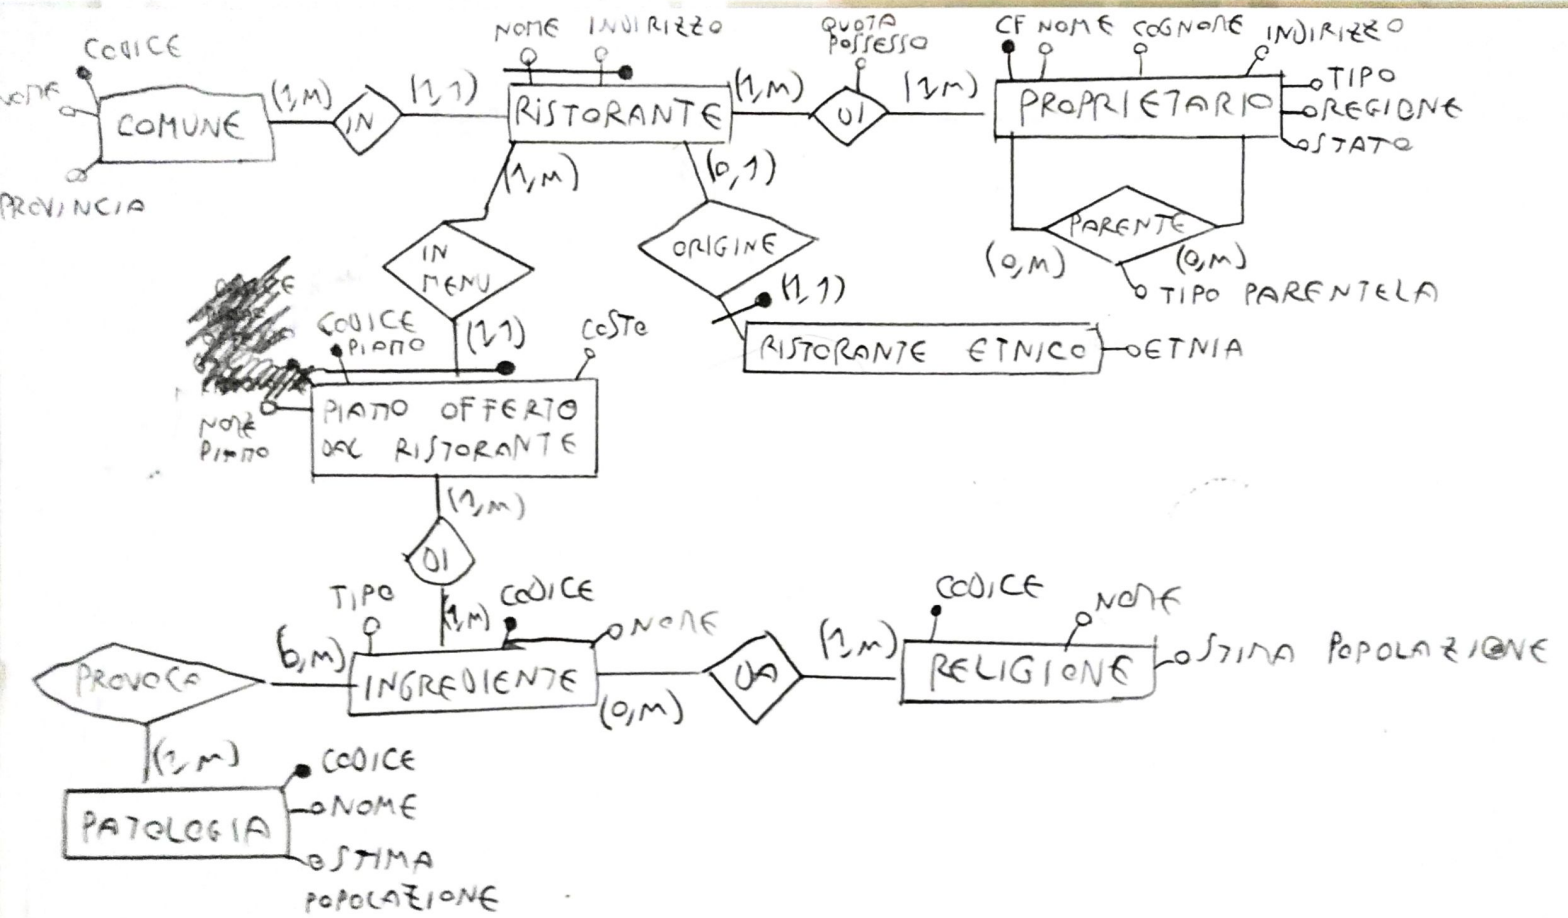 CODICE
NOME
COMUNE
PROVINCIA
(1,M)
IN
(1,1)
NOME INDIRIZZO
RISTORANTE
(1,M)
QUOTA
POSSESSO
DI
(1,M)
CF NOME COGNOME INDIRIZZO
PROPRIETARIO
TIPO
REGIONE
STATO
PARENTE
(0,M)
(0,M)
TIPO PARENTELA
(1,M)
IN
MENU
(1,1)
(0,1)
ORIGINE
(1,1)
RISTORANTE ETNICO
ETNIA
CODICE
PIATTO
COSTO
NOME
PIATTO
PIATTO OFFERTO
DAL RISTORANTE
(1,M)
DI
(1,M)
TIPO
CODICE
NOME
INGREDIENTE
(0,M)
PROVOCA
(1,M)
(0,M)
DA
(1,M)
CODICE
NOME
RELIGIONE
STIMA POPOLAZIONE
PATOLOGIA
CODICE
NOME
STIMA
POPOLAZIONE